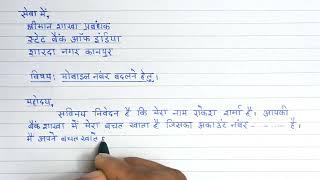 सेवा में,
श्रीमान शाखा प्रबंधक
स्टेट बैंक ऑफ इंडिया
शारदा नगर कानपुर
विषय: मोबाइल नंबर बदलने हेतु।
महोदय,
सविनय निवेदन है कि मेरा नाम राकेश शर्मा है। आपकी
बैंक शाखा में मेरा बचत खाता है जिसका अकाउंट नंबर -------- है,
मैं अपने बचत खाते